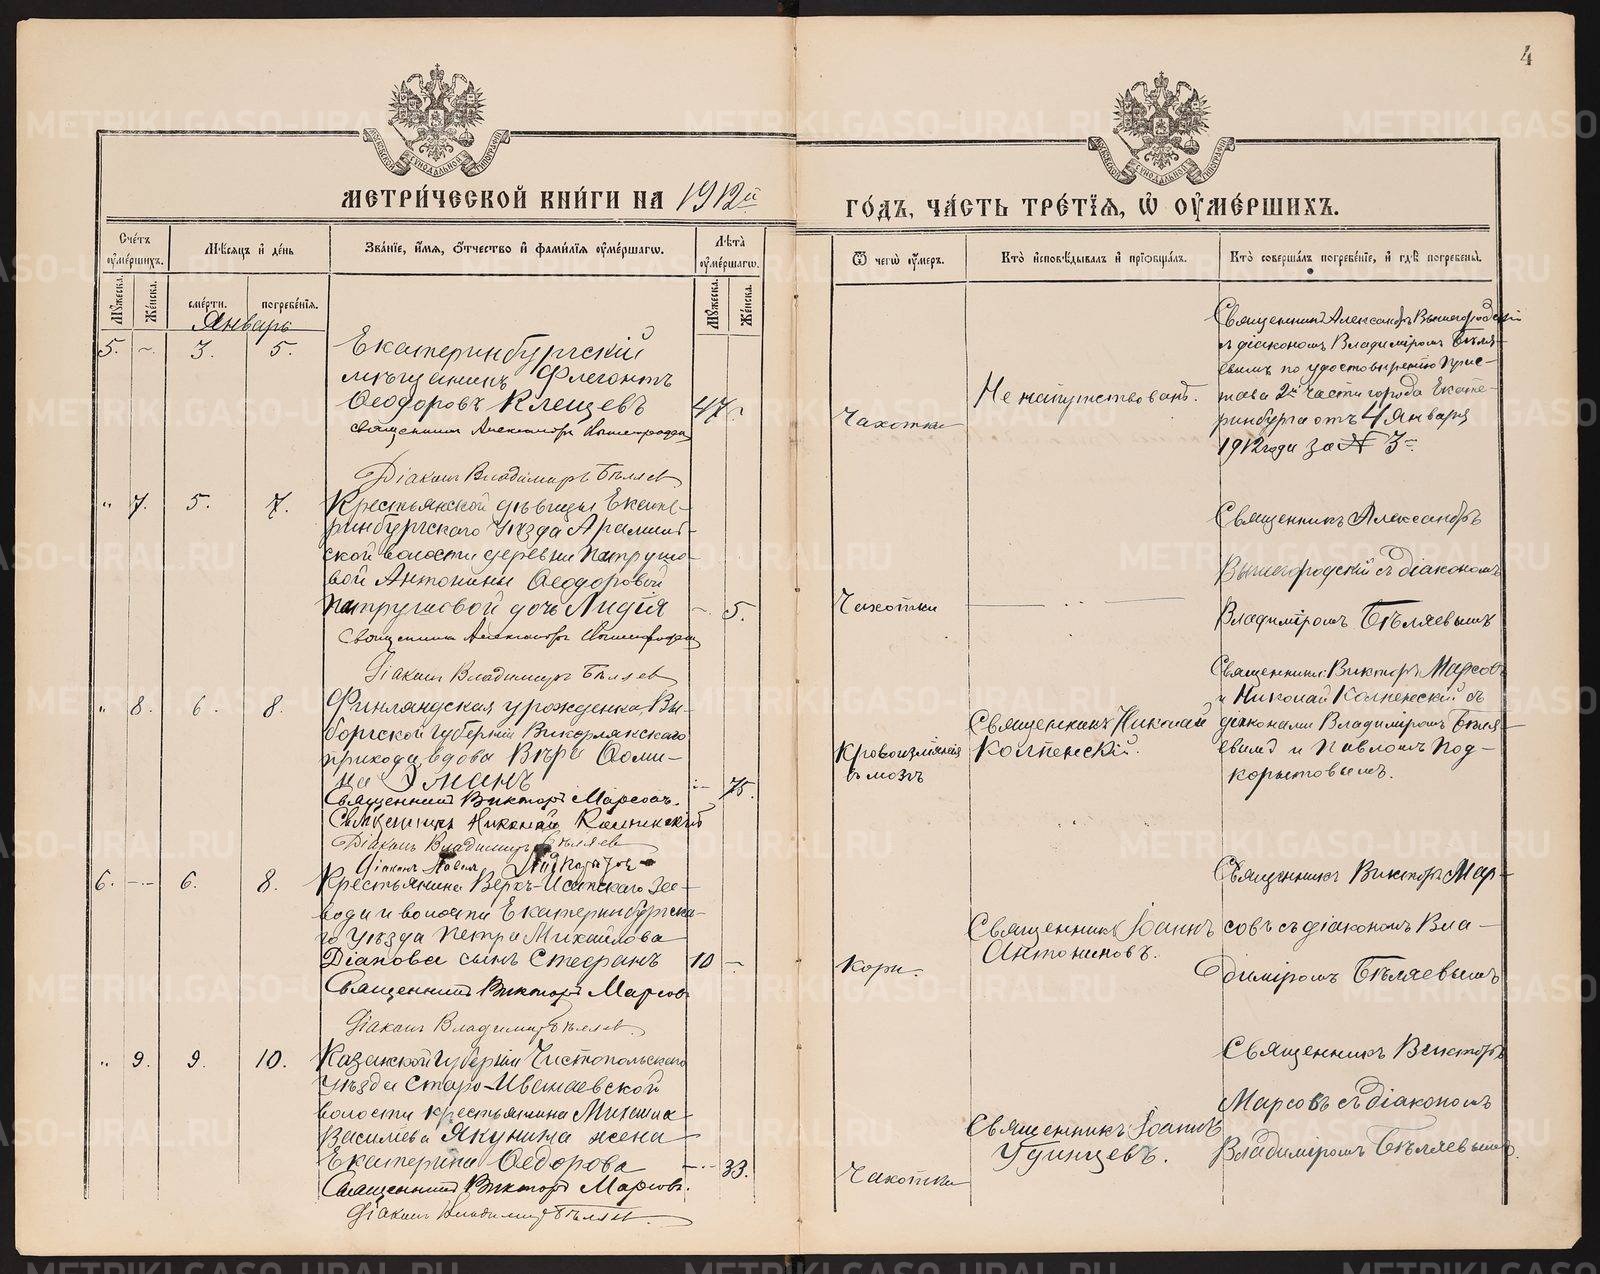 4
МЕТРИ́ЧЕСКОЙ КНИ́ГИ НА 1912й
ГО́ДЪ, ЧА́СТЬ ТРЕ́ТЇѦ, Ѡ҆ ОУ҆МЕ́РШИХЪ.
Сче́тъ оу҆ме́ршихъ.
Мѣ́сяцъ и҆ де́нь
Зва́нїе, и҆́мя, ѻ҆́тчество и҆ фами́лїя оу҆ме́ршагѡ.
Лѣ́та оу҆ме́ршагѡ.
Ѿ чегѡ̀ оу҆́меръ.
Кто̀ и҆сповѣ́дывалъ и҆ прїѡбща́лъ.
Кто̀ соверша́лъ погребе́нїе, и҆ гдѣ̀ погребены̀.
Мꙋ́жеска.
Же́нска.
сме́рти.
погребе́нїя.
Мꙋ́жеска.
Же́нска.
Январь
5. – 3. 5.
Екатеринбургскій
мѣщанинъ Флегонтъ
Ѳеодоровъ Клещевъ
47.
Священникъ Александръ Вышегородскій
Діаконъ Владимиръ Бѣляев
Чахотка
Не напутствованъ.
Священникъ Александръ Вышегородскій
съ діакономъ Владиміромъ Бѣля-
евымъ по удостовѣренію прис-
тава 2й части города Екате-
ринбурга отъ 4 января
1912 года за № 3
" 7. 5. 7.
Крестьянской дѣвицы Екате-
ринбургскаго уѣзда Арамиль-
ской волости деревни Патрушо-
вой Антонины Ѳеодоровой
Патрушовой дочь Лидія
– 5.
Священникъ Александръ Вышегородскій
Діаконъ Владимиръ Бѣляев
Чахотки
Священникъ Александръ
Вышегородскій съ діакономъ
Владиміромъ Бѣляевымъ
" 8. 6. 8.
Финляндская уроженка, Вы-
боргской губерніи
прихода, вдова Вѣра Ѳоми-
на
75.
Священникъ Викторъ Марсовъ.
Священникъ Николай
Діаконъ Владимиръ Бѣляев
Діаконъ Павелъ
Кровоизліянія
въ мозгъ
Священникъ Николай
Священники: Викторъ Марсовъ
и Николай съ
діаконами Владиміромъ Бѣля-
евымъ и Павломъ Под-
корытовымъ.
6. – 6. 8.
Крестьянина Верхъ-Исетскаго за-
вода и волости Екатеринбургска-
го уѣзда Петра Михайлова
сынъ Стефанъ
10 –
Священникъ Викторъ Марсовъ
Діаконъ Владимиръ Бѣляев.
Кори.
Священникъ Іоаннъ
Антониновъ.
Священникъ Викторъ Мар-
совъ съ діакономъ Вла-
диміромъ Бѣляевымъ
" 9. 9. 10.
Казанской губерніи Чистопольскаго
уѣзда Старо-Ивашевской
волости крестьянина
Василіева Якунина жена
Екатерина Ѳеодорова
– 33.
Священникъ Викторъ Марсовъ.
Діаконъ Владимиръ Бѣляев.
Чахотка
Священникъ Іоаннъ
Удинцевъ.
Священникъ Викторъ
Марсовъ съ діакономъ
Владиміромъ Бѣляевымъ.
METRIKI.GASO-URAL.RU